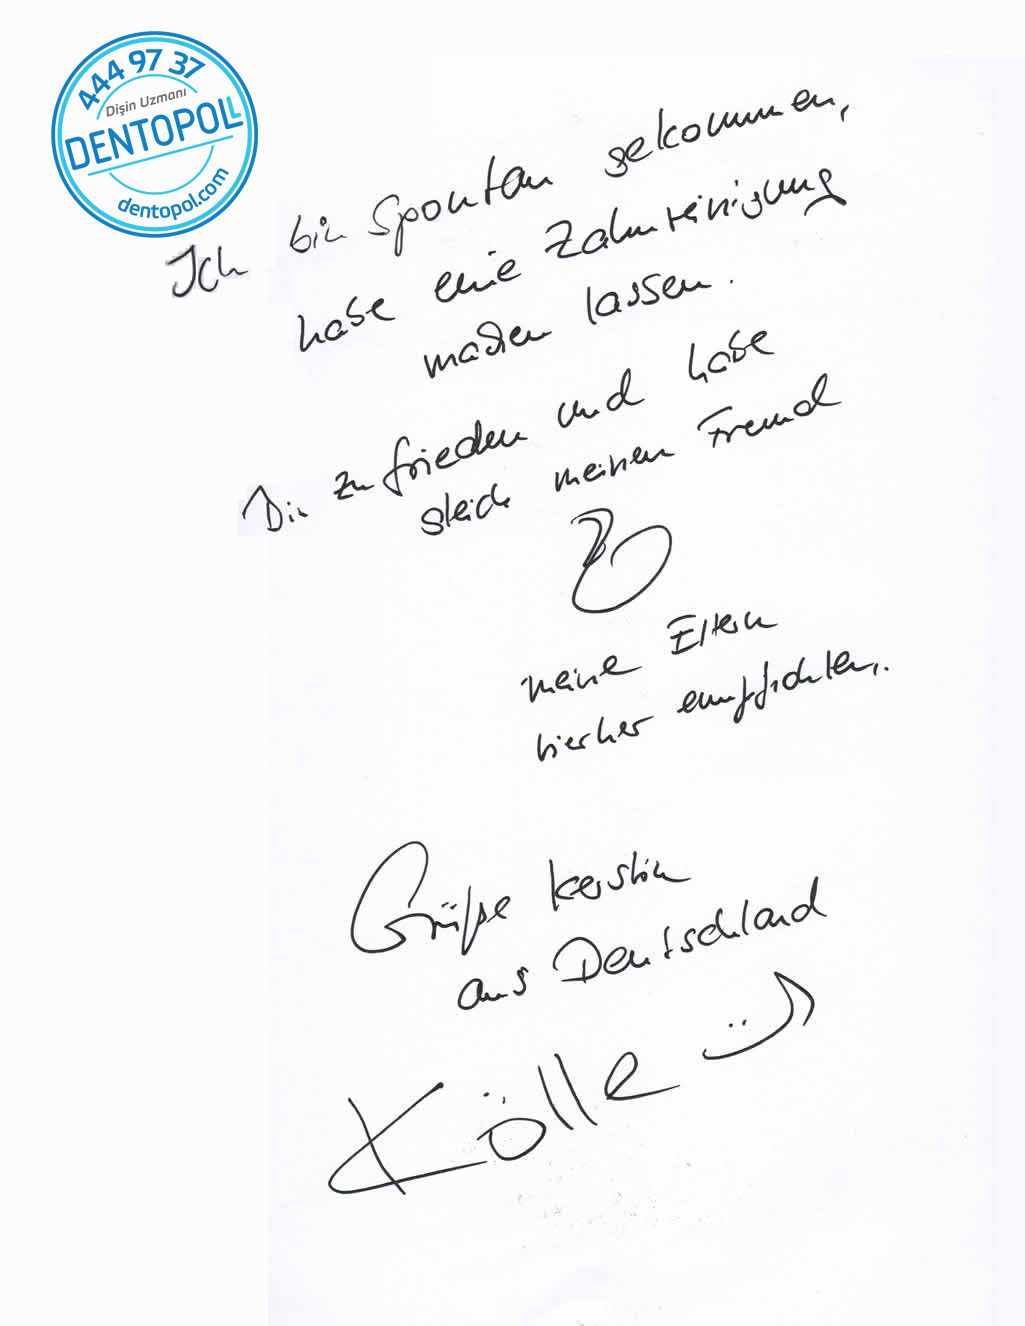 444 97 37
Dişin Uzmanı
DENTOPOLL
dentopol.com
Ich bin spontan gekommen,
habe eine Zahnreinigung
machen lassen.
Bin zufrieden und habe
gleich meinen Freund
&
meine Eltern
hierher empfohlen.
Grüße Kerstin
aus Deutschland
Kölle